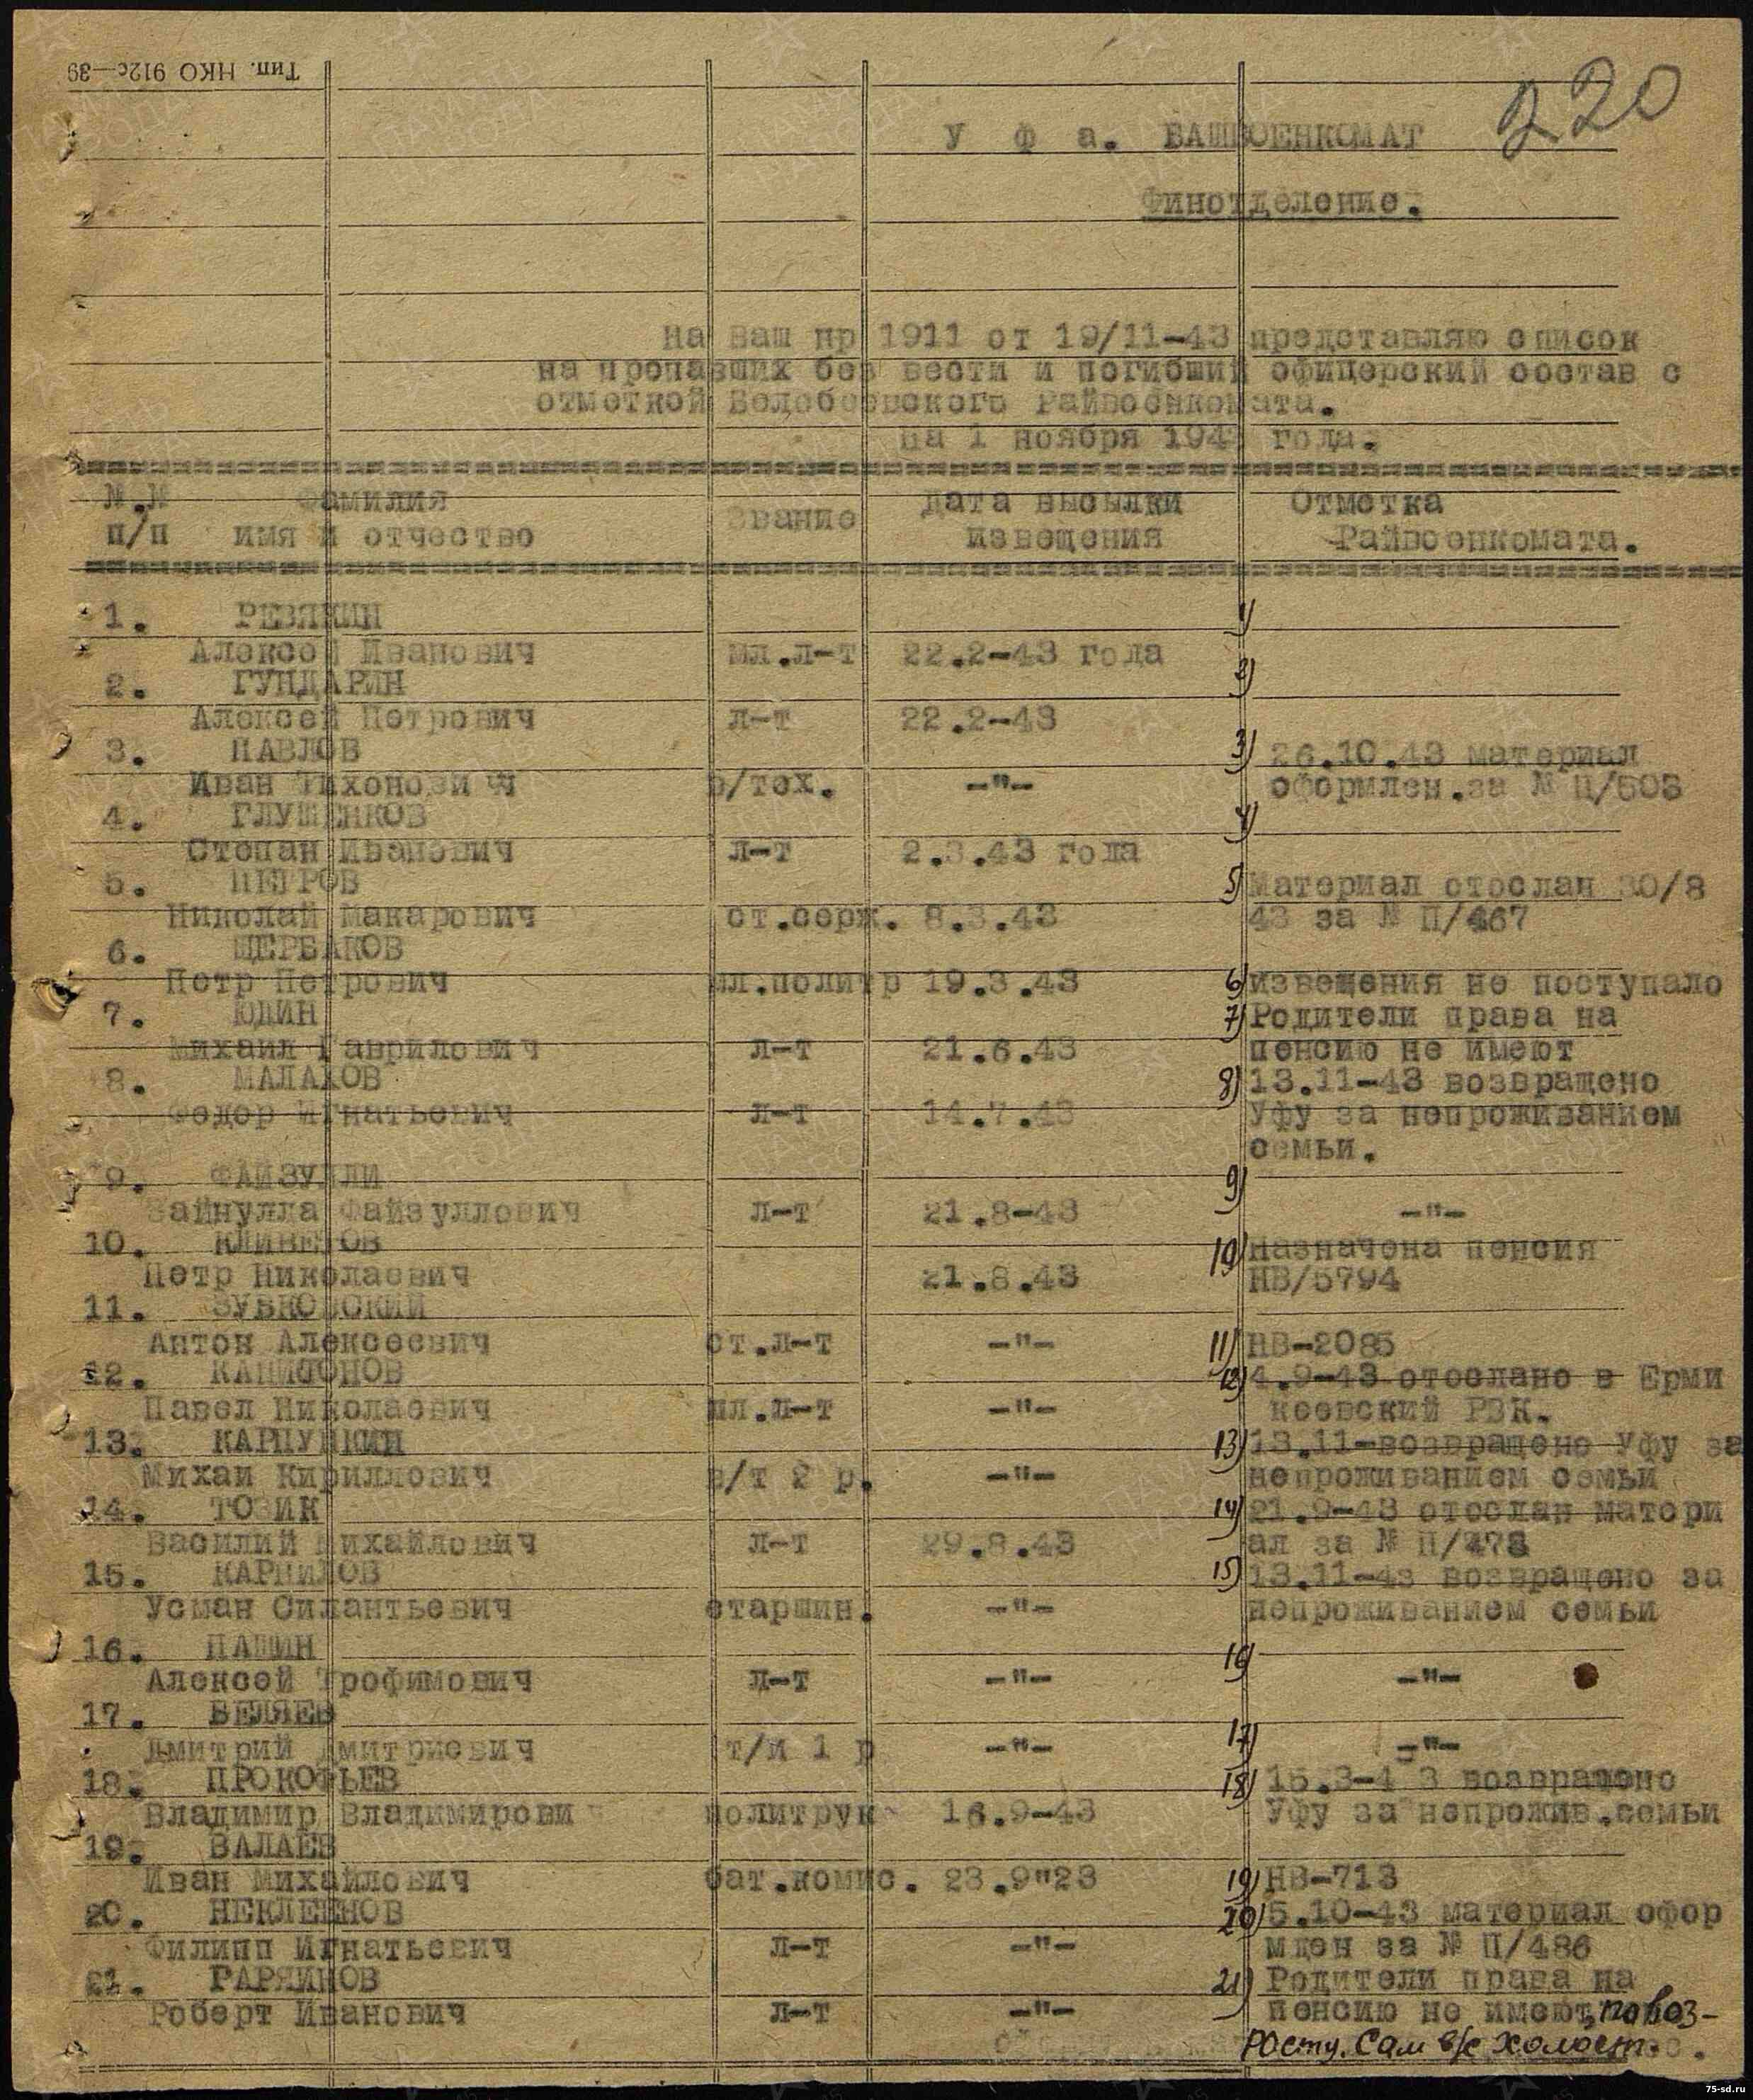 Тип. НКО 912с—39
220
У ф а. БАШВОЕНКОМАТ
Финотделение.
На Ваш нр 1911 от 19/11-43 представляю список
на пропавших без вести и погибший офицерский состав с
отметкой Белебеевского Райвоенкомата.
на 1 ноября 194 года.
№.№ Фамилия Звание Дата высылки Отметка
п/п имя и отчество извещения Райвоенкомата.
1. РЕВЯКИН 1)
Алексей Иванович мл.л-т 22.2-43 года
2. ГУНДАРИН 2)
Алексей Петрович л-т 22.2-43
3. ПАВЛОВ 3) 26.10.43 материал
Иван Тихонович в/тех. -"- оформлен.за № П/503
4. ГЛУШЕНКОВ 4)
Степан Иванович л-т 2.3.43 года
5. ПЕТРОВ 5) Материал отослан 30/8
Николай Макарович ст.серж. 8.3.43 43 за № П/467
6. ЩЕРБАКОВ
Петр Петрович мл.политр 19.3.43 6) извещения не поступало
7. ЮДИН 7) Родители права на
Михаил Гаврилович л-т 21.6.43 пенсию не имеют
8. МАЛАХОВ 8) 13.11-43 возвращено
Федор Игнатьевич л-т 14.7.43 Уфу за непроживанием
семьи.
9. ФАЙЗУЛЛИ 9)
Зайнулла Файзуллович л-т 21.8-43 -"-
10. 10) Назначена пенсия
Петр Николаевич 21.8.43 НВ/5794
11. ЗУБКОВСКИЙ
Антон Алексеевич ст.л-т -"- 11) НВ-2085
12. КАПИТОНОВ 12) 4.9-43 отослано в Ерми
Павел Николаевич мл.л-т -"- кеевский РВК.
13. КАРПУНКИН 13) 13.11-возвращено Уфу за
Михаи Кириллович в/т 2 р. -"- непроживанием семьи
14. ТОЗИК 14) 21.9-43 отослан матери
Василий Михайлович л-т 29.8.43 ал за № П/478
15. КАРПИЛОВ 15) 13.11-43 возвращено за
Усман Силантьевич старшин. -"- непроживанием семьи
16. ПАШИН 16)
Алексей Трофимович л-т -"- -"-
17. БЕЛЯЕВ 17)
Дмитрий Дмитриевич т/и 1 р -"- -"-
18. ПРОКОФЬЕВ 18) 15.3-4 3 возвращено
Владимир Владимирови политрук 16.9-43 Уфу за непрожив.семьи
19. ВАЛАЕВ
Иван Михайлович бат.комис. 23.9"23 19) НВ-713
20. НЕКЛЕЕНОВ 20) 5.10-43 материал офор
Филипп Игнатьевич л-т -"- млен за № П/486
21. ГАРЯИНОВ 21) Родители права на
Роберт Иванович л-т -"- пенсию не имеют, по воз-
Росту. Сам б/с холост.
75-sd.ru